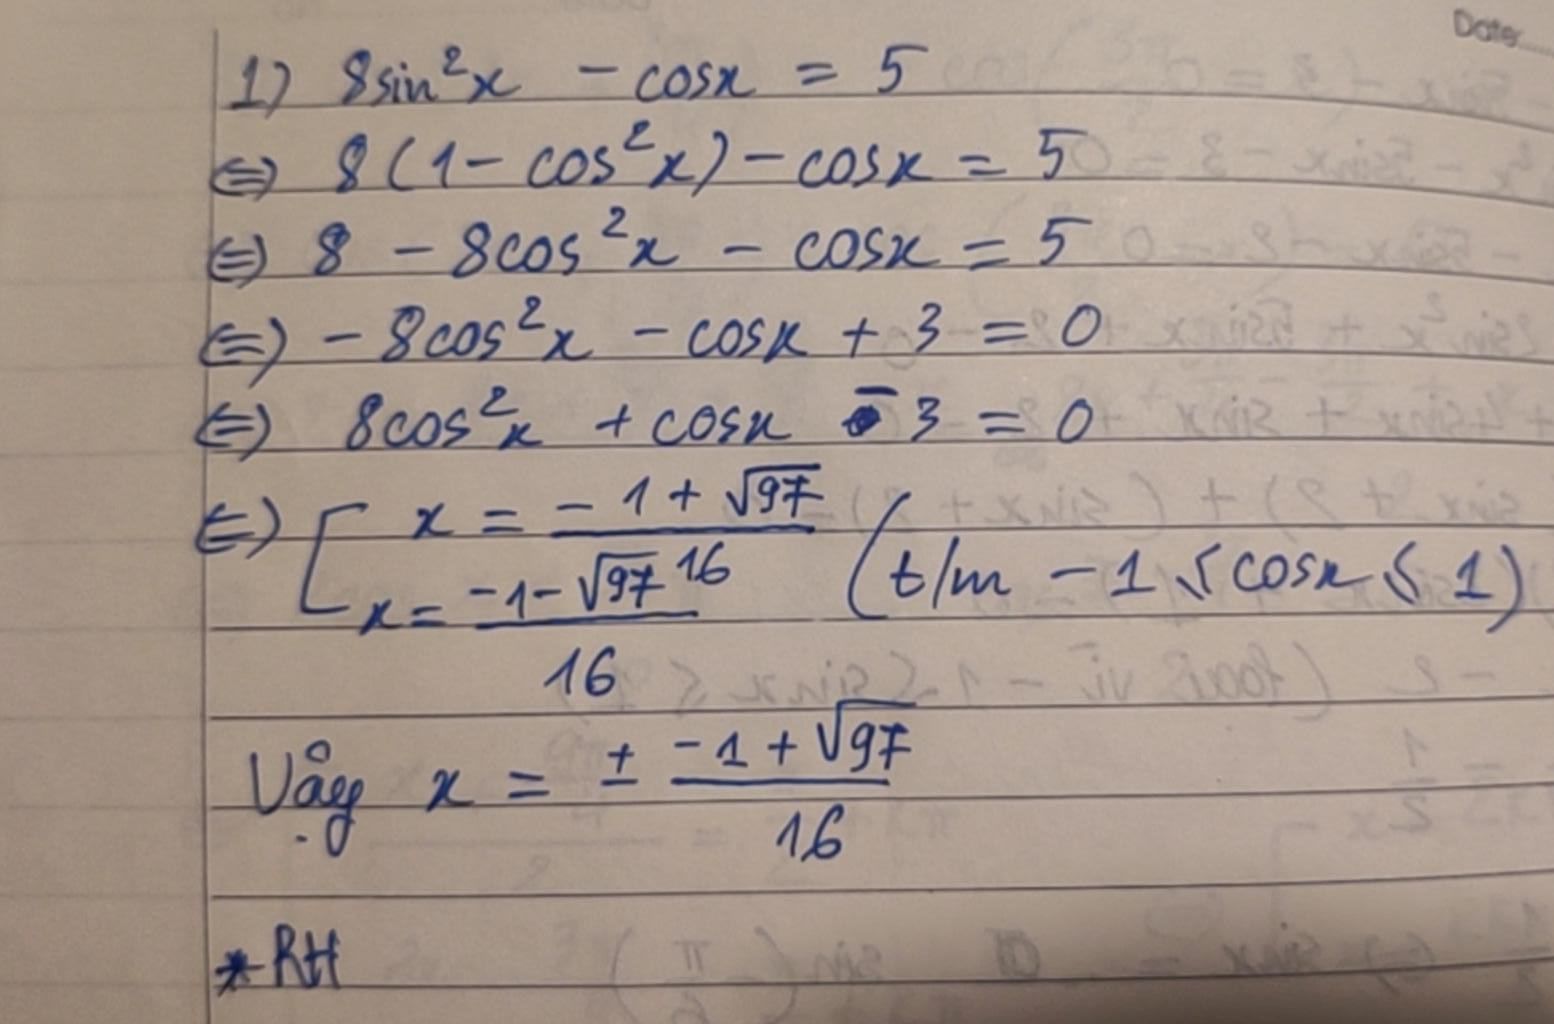 Date:
1) 8sin²x - cosx = 5
⇔ 8(1 - cos²x) - cosx = 5
⇔ 8 - 8cos²x - cosx = 5
⇔ -8cos²x - cosx + 3 = 0
⇔ 8cos²x + cosx - 3 = 0
⇔ [ x = (-1 + √97)/16
x = (-1 - √97)/16 (t/m -1 ≤ cosx ≤ 1)
Vậy x = ± (-1 + √97)/16
* RH